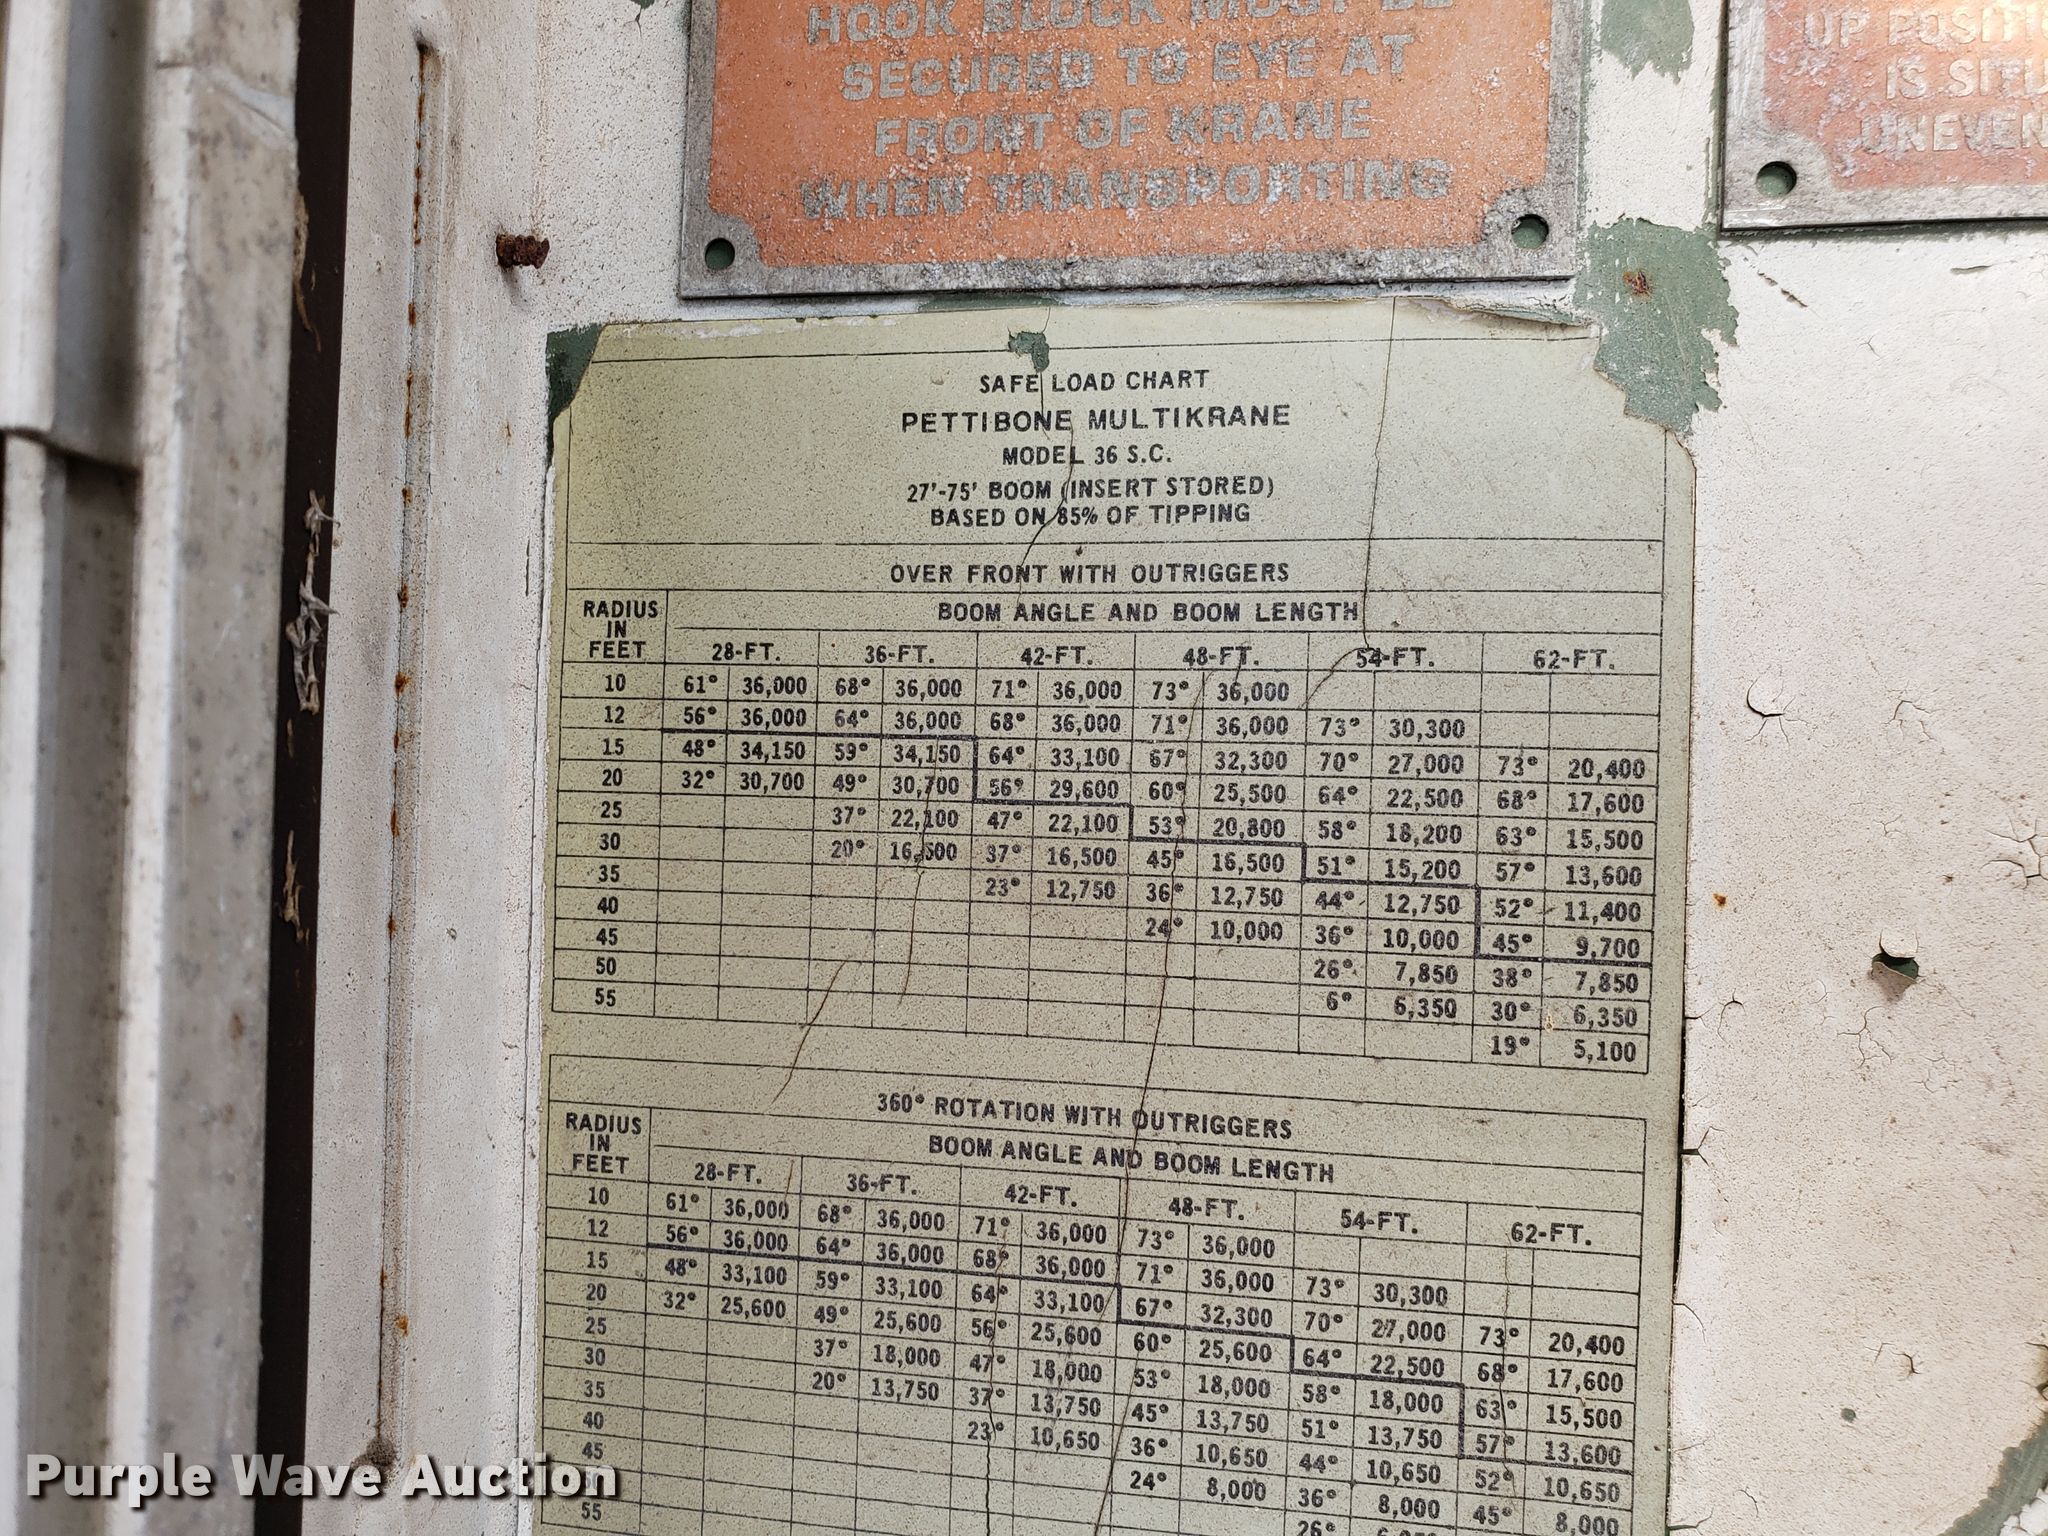 HOOK BLOCK MUST BE
SECURED TO EYE AT
FRONT OF KRANE
WHEN TRANSPORTING
UP
IS
UNEVEN
SAFE LOAD CHART
PETTIBONE MULTIKRANE
MODEL 36 S.C.
27'-75' BOOM (INSERT STORED)
BASED ON 85% OF TIPPING
OVER FRONT WITH OUTRIGGERS
RADIUS IN FEET
BOOM ANGLE AND BOOM LENGTH
28-FT. 36-FT. 42-FT. 48-FT. 54-FT. 62-FT.
10 61° 36,000 68° 36,000 71° 36,000 73° 36,000
12 56° 36,000 64° 36,000 68° 36,000 71° 36,000 73° 30,300
15 48° 34,150 59° 34,150 64° 33,100 67° 32,300 70° 27,000 73° 20,400
20 32° 30,700 49° 30,700 56° 29,600 60° 25,500 64° 22,500 68° 17,600
25 37° 22,100 47° 22,100 53° 20,800 58° 18,200 63° 15,500
30 20° 16,500 37° 16,500 45° 16,500 51° 15,200 57° 13,600
35 23° 12,750 36° 12,750 44° 12,750 52° 11,400
40 24° 10,000 36° 10,000 45° 9,700
45 26° 7,850 38° 7,850
50 6° 6,350 30° 6,350
55 19° 5,100
360° ROTATION WITH OUTRIGGERS
RADIUS IN FEET
BOOM ANGLE AND BOOM LENGTH
28-FT. 36-FT. 42-FT. 48-FT. 54-FT. 62-FT.
10 61° 36,000 68° 36,000 71° 36,000 73° 36,000
12 56° 36,000 64° 36,000 68° 36,000 71° 36,000 73° 30,300
15 48° 33,100 59° 33,100 64° 33,100 67° 32,300 70° 27,000 73° 20,400
20 32° 25,600 49° 25,600 56° 25,600 60° 25,600 64° 22,500 68° 17,600
25 37° 18,000 47° 18,000 53° 18,000 58° 18,000 63° 15,500
30 20° 13,750 37° 13,750 45° 13,750 51° 13,750 57° 13,600
35 23° 10,650 36° 10,650 44° 10,650 52° 10,650
40 24° 8,000 36° 8,000 45° 8,000
45 26°
55
Purple Wave Auction